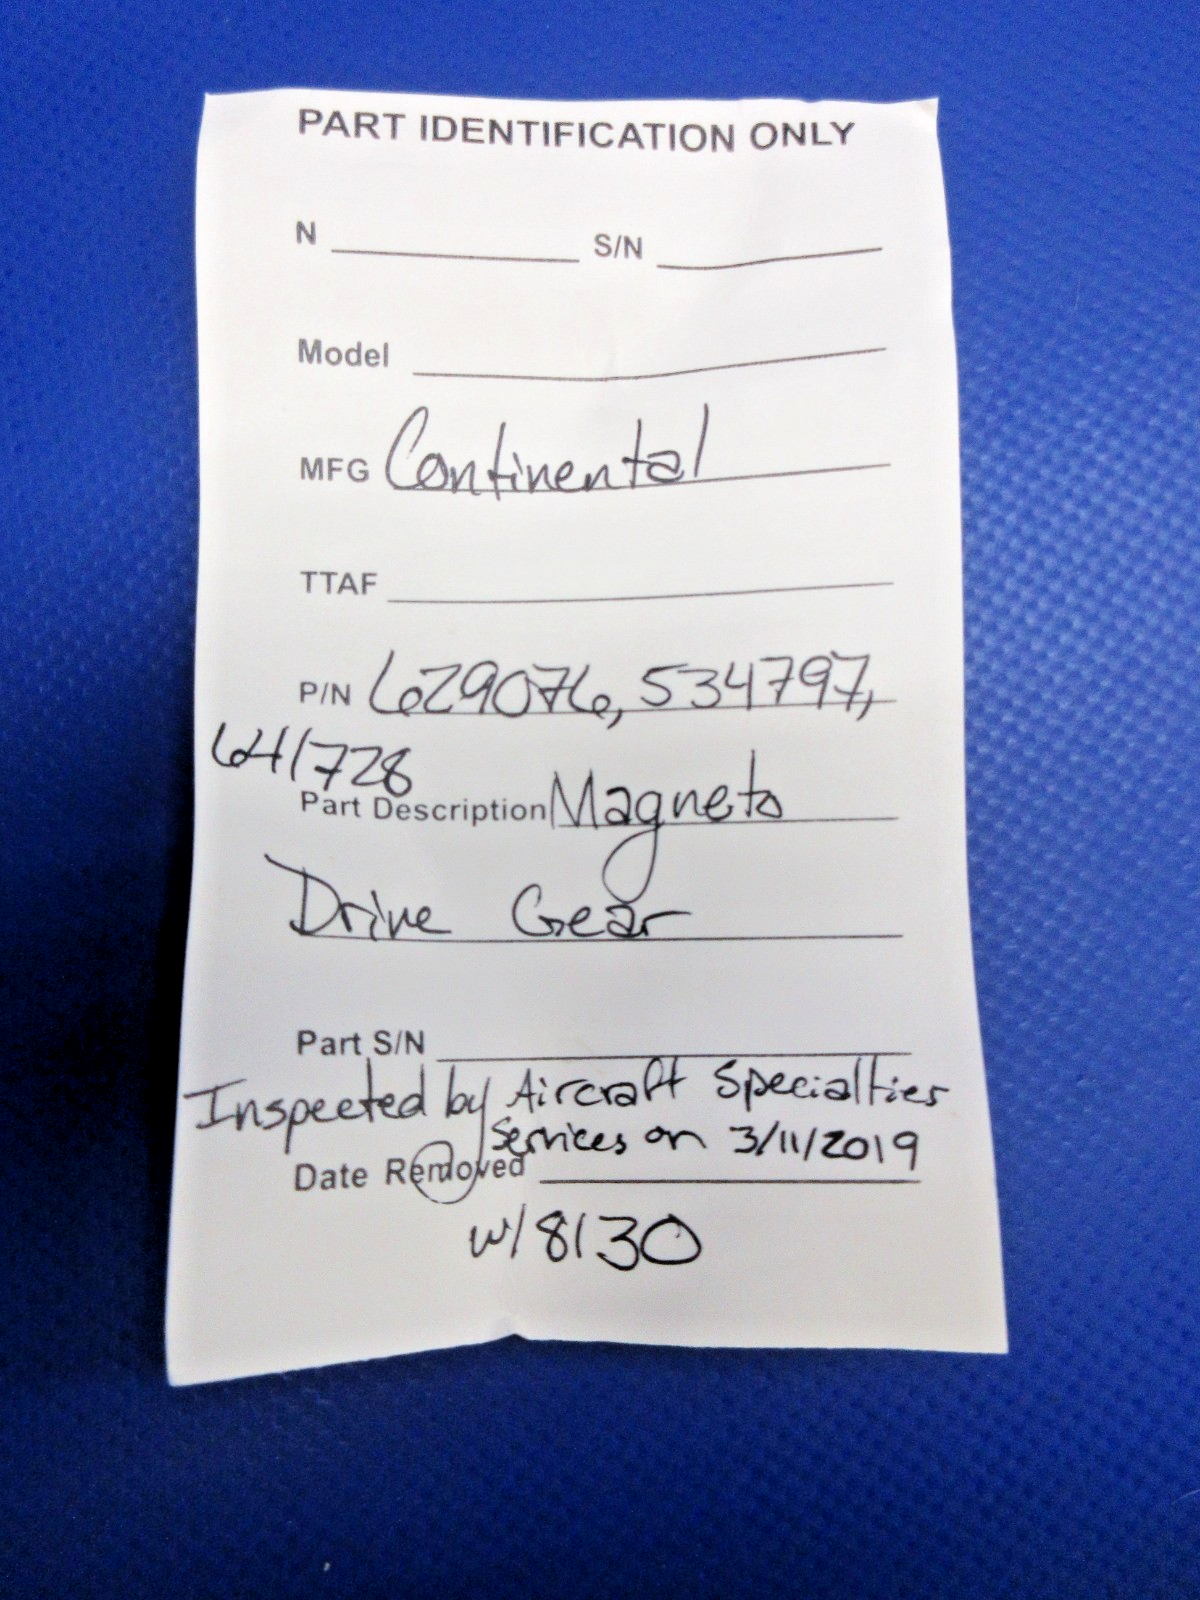 PART IDENTIFICATION ONLY
N S/N
Model
MFG Continental
TTAF
P/N 629076, 534797,
641728
Part Description Magneto
Drive Gear
Part S/N
Inspected by Aircraft Specialties
Services on 3/11/2019
Date Removed
w/8130